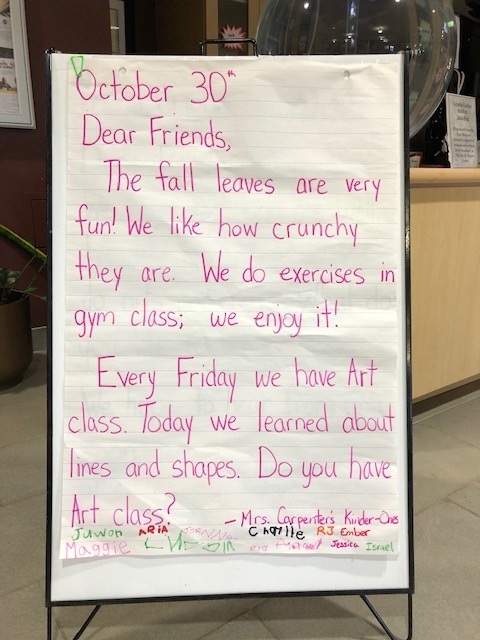 October 30th
Dear Friends,
The fall leaves are very
fun! We like how crunchy
they are. We do exercises in
gym class; we enjoy it!
Every Friday we have Art
class. Today we learned about
lines and shapes. Do you have
Art class?
- Mrs. Carpenter's Kinder-Ones
Juwon ARiA RJ Ember
Maggie Jessica Israel